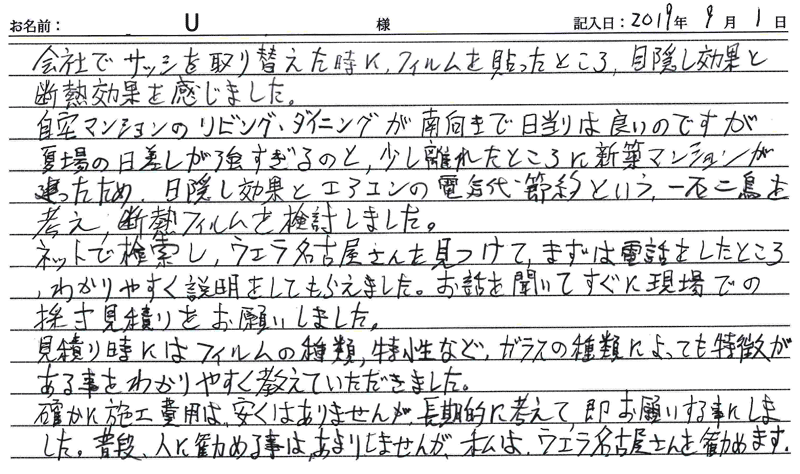 お名前： U 様 記入日：2019年 9月 1日
会社でサッシを取り替えた時に、フィルムを貼ったところ、目隠し効果と
断熱効果を感じました。
自宅マンションのリビング・ダイニングが南向きで日当りは良いのですが
夏場の日差しが強すぎるのと、少し離れたところに新築マンションが
建ったため、目隠し効果とエアコンの電気代節約という、一石二鳥を
考え、断熱フィルムを検討しました。
ネットで検索し、ウエラ名古屋さんを見つけて、まずは電話をしたところ
、わかりやすく説明をしてもらえました。お話を聞いてすぐに現場での
採寸見積りをお願いしました。
見積り時にはフィルムの種類、特性など、ガラスの種類によっても特徴が
ある事をわかりやすく教えていただきました。
確かに施工費用は、安くはありませんが、長期的に考えて、即お願いする事にしま
した。普段、人に勧める事は、あまりしませんが、私は、ウエラ名古屋さんを勧めます。